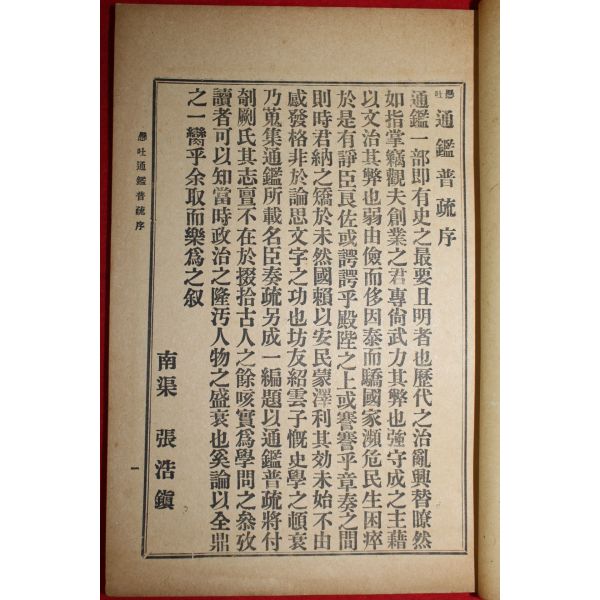 懸吐 通鑑普疏序
通鑑一部即有史之最要且明者也歷代之治亂興替瞭然
如指掌竊觀夫創業之君專尙武力其弊也強守成之主藉
以文治其弊也弱由儉而侈因泰而驕國家瀕危民生困瘁
於是有諍臣良佐或諤諤乎殿陛之上或謇謇乎章奏之間
則時君納之矯於未然國賴以安民蒙澤利其効未始不由
感發格非於論思文字之功也坊友紹雲子慨史學之頓衰
乃蒐集通鑑所載名臣奏疏另成一編題以通鑑普疏將付
剞劂氏其志亶不在於掇拾古人之餘咳實爲學問之叅攷
讀者可以知當時政治之隆汚人物之盛衰也奚論以全鼎
之一臠乎余取而樂爲之叙
南渠 張浩鎭
懸吐通鑑普疏序
一